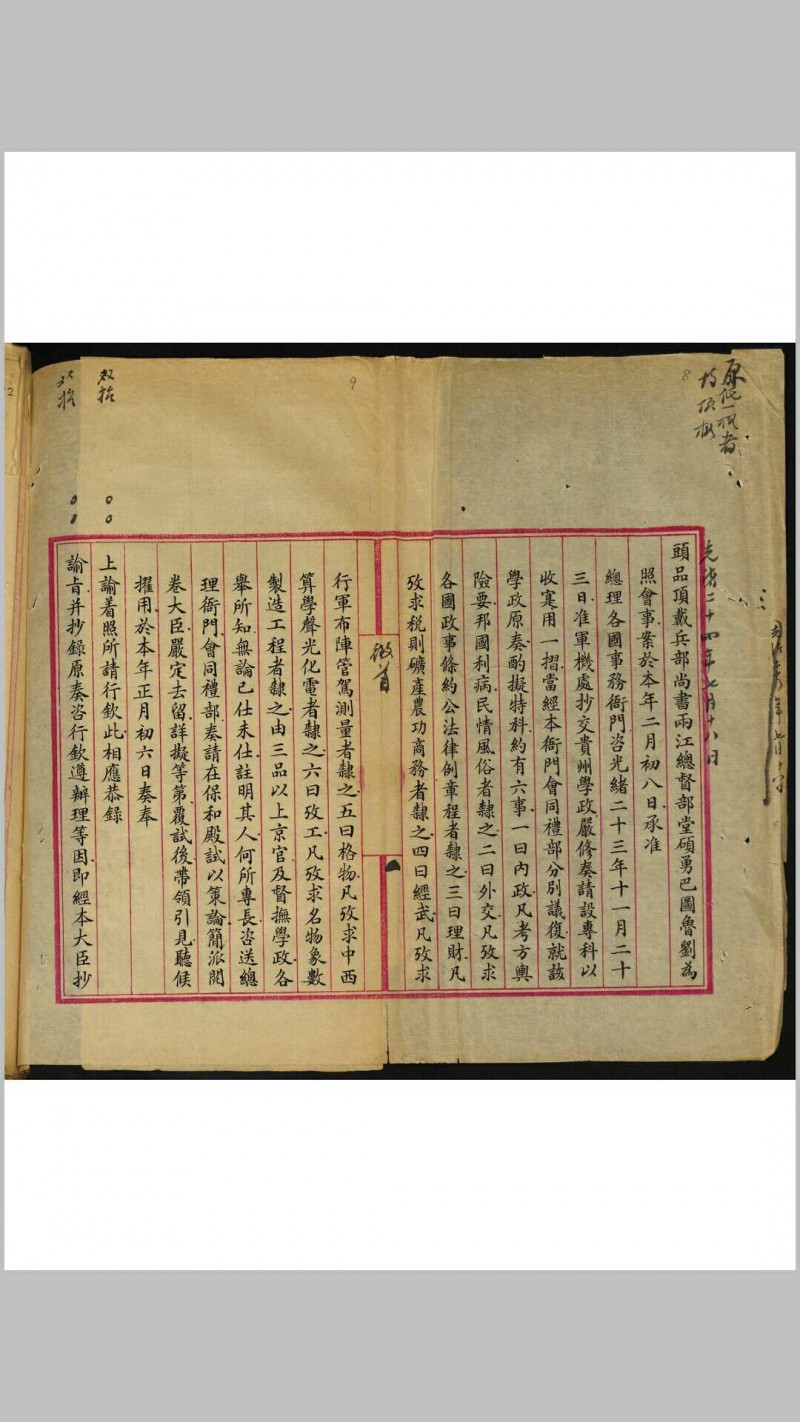 光緒二十四年七月十八日
頭品頂戴兵部尚書兩江總督部堂碩勇巴圖魯劉為
照會事案於本年二月初八日承准
總理各國事務衙門咨光緒二十三年十一月二十
三日准軍機處抄交貴州學政嚴修奏請設專科以
收寔用一摺當經本衙門會同禮部分別議復就該
學政原奏酌擬特科約有六事一曰內政凡考方輿
險要邦國利病民情風俗者隸之二曰外交凡攷求
各國政事條約公法律例章程者隸之三曰理財凡
攷求税則礦產農功商務者隸之四曰經武凡攷求
行軍布陣管駕測量者隸之五曰格物凡攷求中西
算學聲光化電者隸之六曰攷工凡攷求名物象數
製造工程者隸之由三品以上京官及督撫學政各
舉所知無論已仕未仕註明其人何所專長咨送總
理衙門會同禮部奏請在保和殿試以策論簡派閱
卷大臣嚴定去留詳擬等第覆試後帶領引見聽候
擢用於本年正月初六日奏奉
上諭着照所請行欽此相應恭錄
諭旨并抄錄原奏咨行欽遵辦理等因即經本大臣抄
8
9
双抬
双抬
2